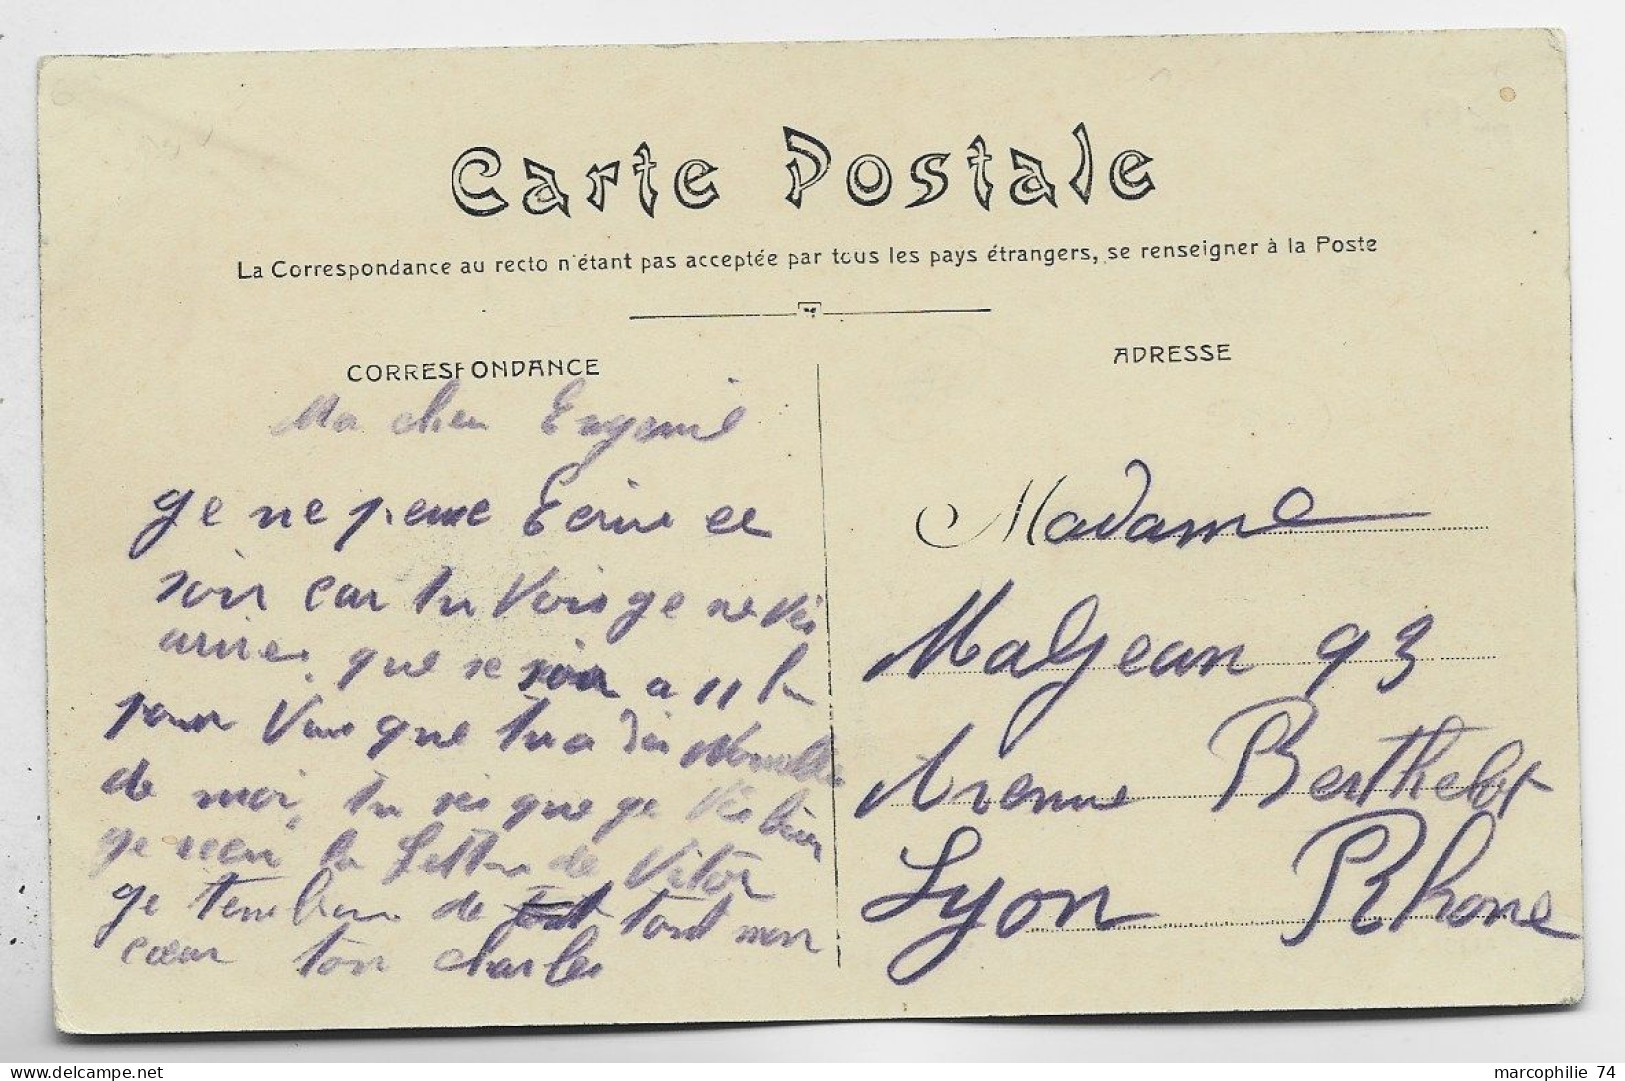 Carte Postale
La Correspondance au recto n'étant pas acceptée par tous les pays étrangers, se renseigner à la Poste
CORRESPONDANCE
ADRESSE
Ma cheu Engenie
ge ne peme Ecrire ce
soir car tu Vois ge ne
arives que se soir a 11 h
pour Vous que tu a Nouvelles
de moi, tu seis que ge Vès bien
ge recu la Lettre de Vitor
ge tembrase de tout tout mon
cœur ton charles
Madame
Maljean 93
Avenue Berthelot
Lyon Rhone
marcophilie 74